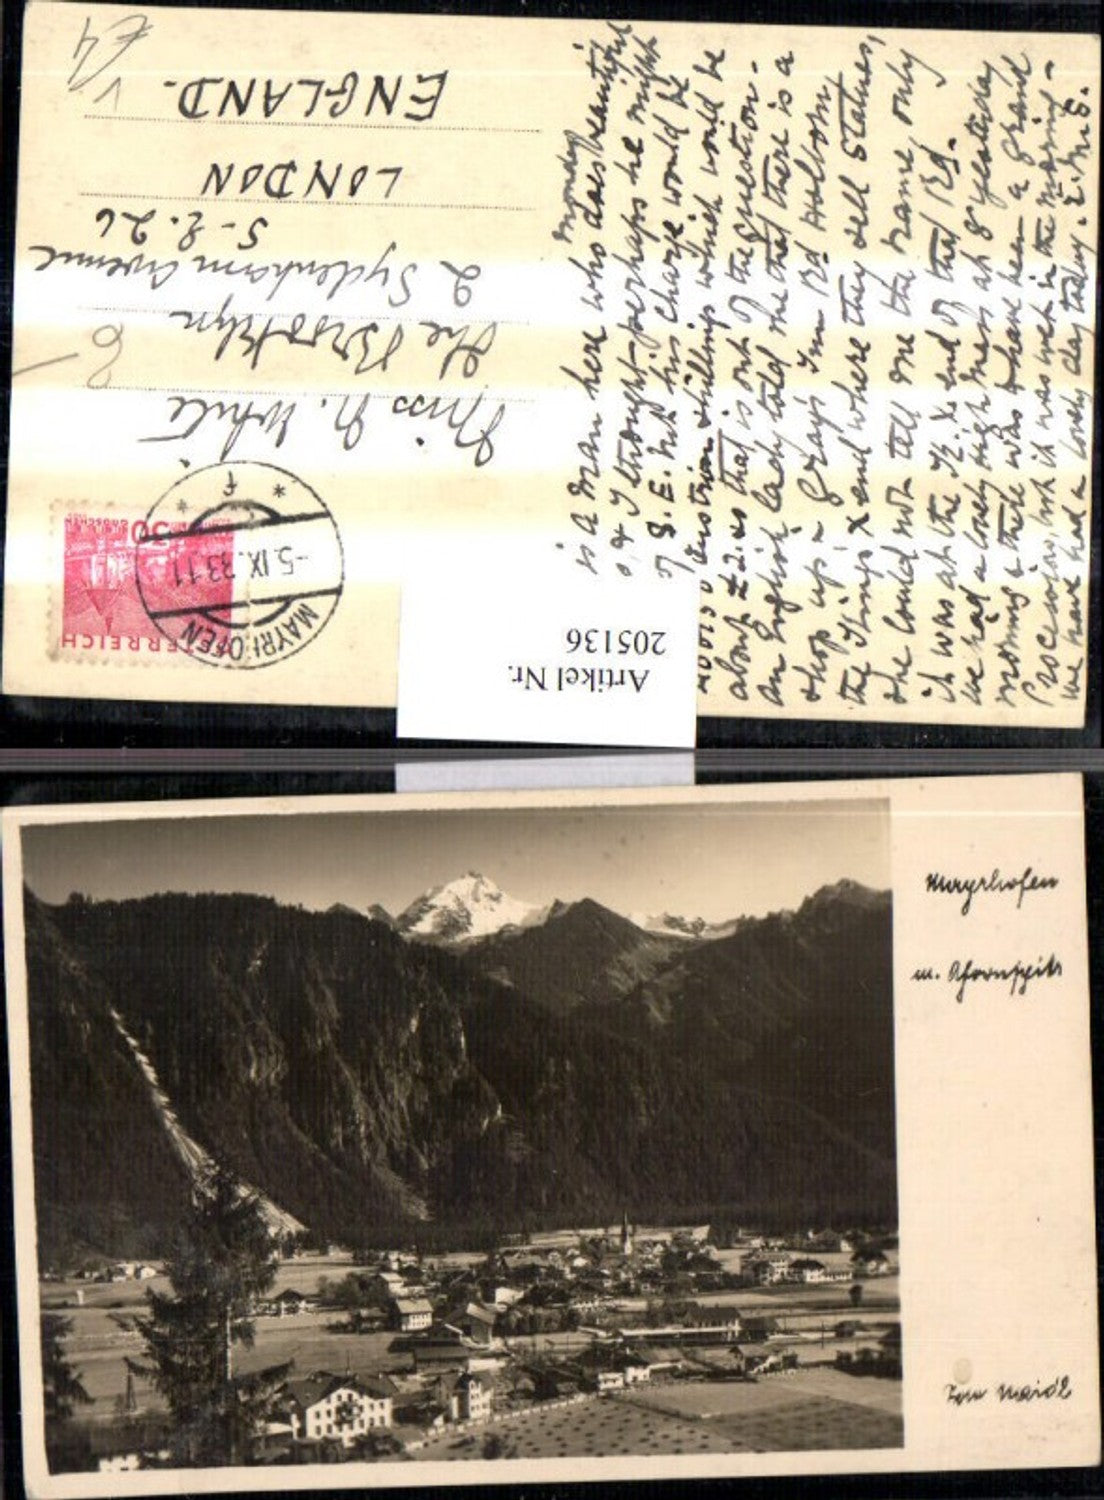 Monday
is a man here who does beautiful
& I thought perhaps he might
of S.E. but his charge would be
Austrian shillings which would be
about £2. so that is out of the question -
An English lady told me that there is a
shop up - Gray's Inn Rd Holborn
the Kings X end where they sell statues,
she could not tell me the name only
it was at the K. X end of that Rd.
We had a lovely High Mass at 8 yesterday
morning & there was to have been a grand
Procession, but it was wet in the morning -
we have had a lovely day today. E. M. S.
£4
V
Miss N. White
The Brooklyn
2 Sydenham Avenue
S.E. 26
LONDON
ENGLAND.
ÖSTERREICH
30
GROSCHEN
MAYRHOFEN
-5.IX.33 11
* f *
Artikel Nr.
205136
Mayrhofen
m. Ahornspitz